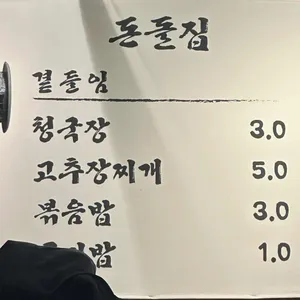 돈돌집
곁들임
청국장 3.0
고추장찌개 5.0
볶음밥 3.0
1.0